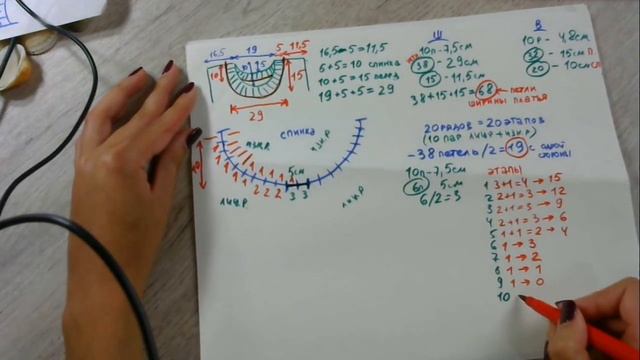 16,5 19 5 11,5
п 15
10 15
29
16,5-5=11,5
5+5=10 спинка
10+5=15 перед
19+5+5=29
Ш
10п-7,5см
38 - 29см
15 - 11,5см
38+15+15=68 ← петли
ширины платья
В
10р - 4,8см
32 - 15см П
20 - 10см СП
20 рядов = 20 этапов
(10 пар лиц.р + изн.р)
- 38 петель/2 = 19 с одной
стороны
10п-7,5см
6п 5см
6/2=3
спинка
изн.р изн.р
10
1 1 1 1 1 1 2 2 2 3 3
5см
лиц.р лиц.р
этапы
1 3+1=4 → 15
2 2+1=3 → 12
3 2+1=3 → 9
4 2+1=3 → 6
5 1+1=2 → 4
6 1 → 3
7 1 → 2
8 1 → 1
9 1 → 0
10